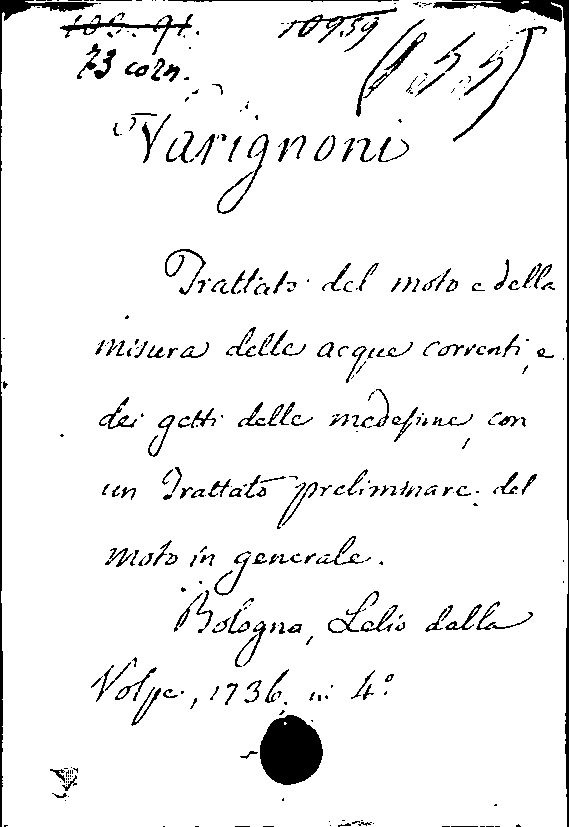 103. 91. 10959
73 corn.
Varignoni
Trattato del moto e della
misura delle acque correnti, e
dei getti delle medesime, con
un Trattato preliminare del
moto in generale.
Bologna, Lelio dalla
Volpe, 1736, in 4º